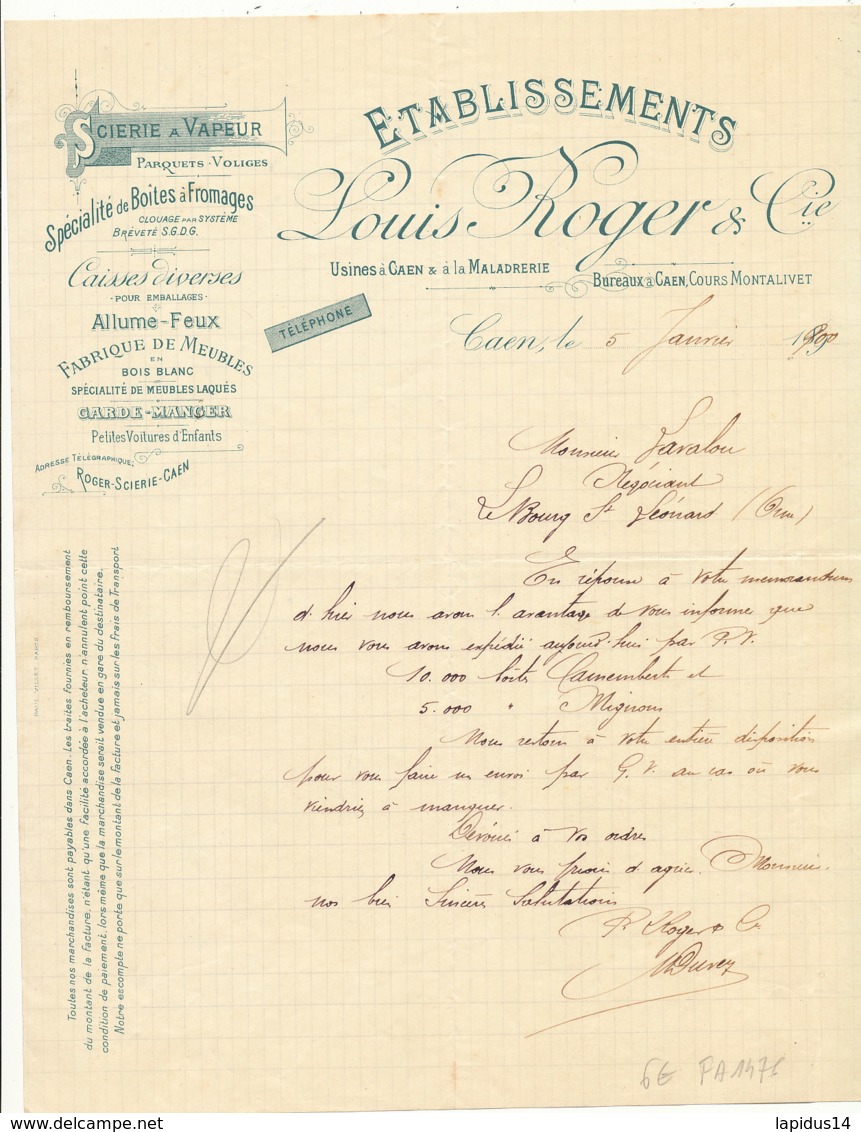 SCIERIE A VAPEUR
PARQUETS - VOLIGES
Spécialité de Boîtes à Fromages
CLOUAGE PAR SYSTÈME
BREVETÉ S.G.D.G.
Caisses diverses
- POUR EMBALLAGES -
ALLUME-FEUX
FABRIQUE DE MEUBLES
EN
BOIS BLANC
SPÉCIALITÉ DE MEUBLES LAQUÉS
GARDE-MANGER
Petites Voitures d'Enfants
ADRESSE TÉLÉGRAPHIQUE:
ROGER-SCIERIE-CAEN
ETABLISSEMENTS
Louis Roger & Cie
Usines à CAEN & à la MALADRERIE
Bureaux à CAEN, COURS MONTALIVET
TÉLÉPHONE
Caen, le 5 Janvier 1900
Monsieur Lavalou
Négociant
Le Bourg St Léonard (Orne)
En réponse à votre memorandum
d'hier nous avons l'avantage de vous informer que
nous vous avons expédié aujourd'hui par P.V.
10.000 boîtes Camemberts et
5.000 " Mignons
Nous restons à votre entière disposition
pour vous faire un envoi par G.V. au cas où vous
viendriez à manquer.
Dévoués à vos ordres
Nous vous prions d'agréer, Monsieur,
nos bien Sincères Salutations
L. Roger & Cie
Toutes nos marchandises sont payables dans Caen. Les traites fournies en remboursement
du montant de la facture, n'étant qu'une facilité accordée à l'acheteur n'annulent point cette
condition de paiement, lors même que la marchandise serait vendue en gare du destinataire.
Notre escompte ne porte que sur le montant de la facture et jamais sur les frais de Transport
6E FA1476
lapidus14